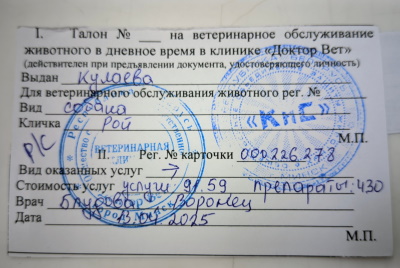 I. Талон № ___ на ветеринарное обслуживание
животного в дневное время в клинике «Доктор Вет»
(действителен при предъявлении документа, удостоверяющего личность)
Выдан Кулаева
Для ветеринарного обслуживания животного рег. №
Вид собака
Кличка Рой
р/с
ВЕТЕРИНАРНАЯ
«КиС»
М.П.
II. Рег. № карточки 000226278
Вид оказанных услуг
Стоимость услуг услуги 91.59 препараты: 430
Врач Воронец
Дата 2025
М.П.